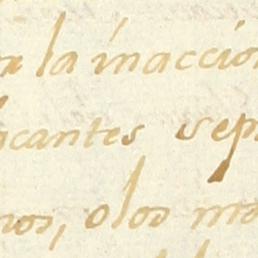 la inacción
cantes sep
nos, olos mo